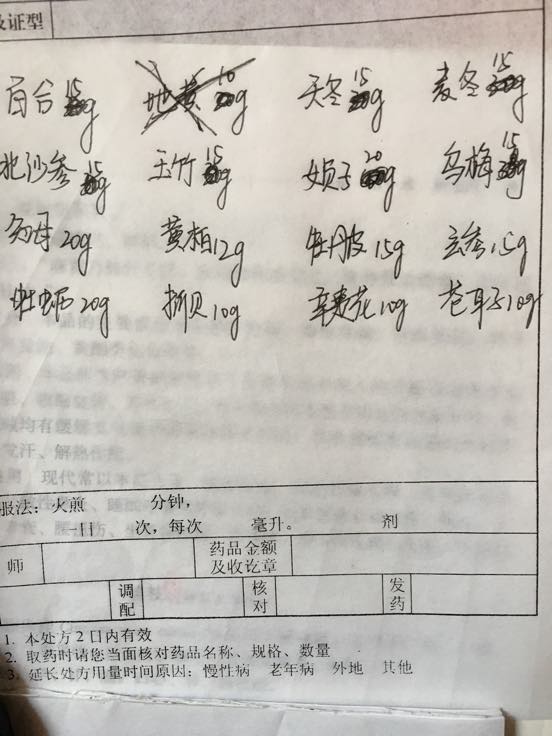 及证型
百合15g 地黄10g 天冬15g 麦冬15g
北沙参15g 玉竹15g 女贞子20g 乌梅15g
知母20g 黄柏12g 牡丹皮15g 玄参15g
牡蛎20g 浙贝10g 辛夷花10g 苍耳子10g
服法：火煎 分钟，
一日 次，每次 毫升。 剂
师 药品金额
及收讫章
调配 核对 发药
1. 本处方2日内有效
2. 取药时请您当面核对药品名称、规格、数量
3. 延长处方用量时间原因：慢性病 老年病 外地 其他